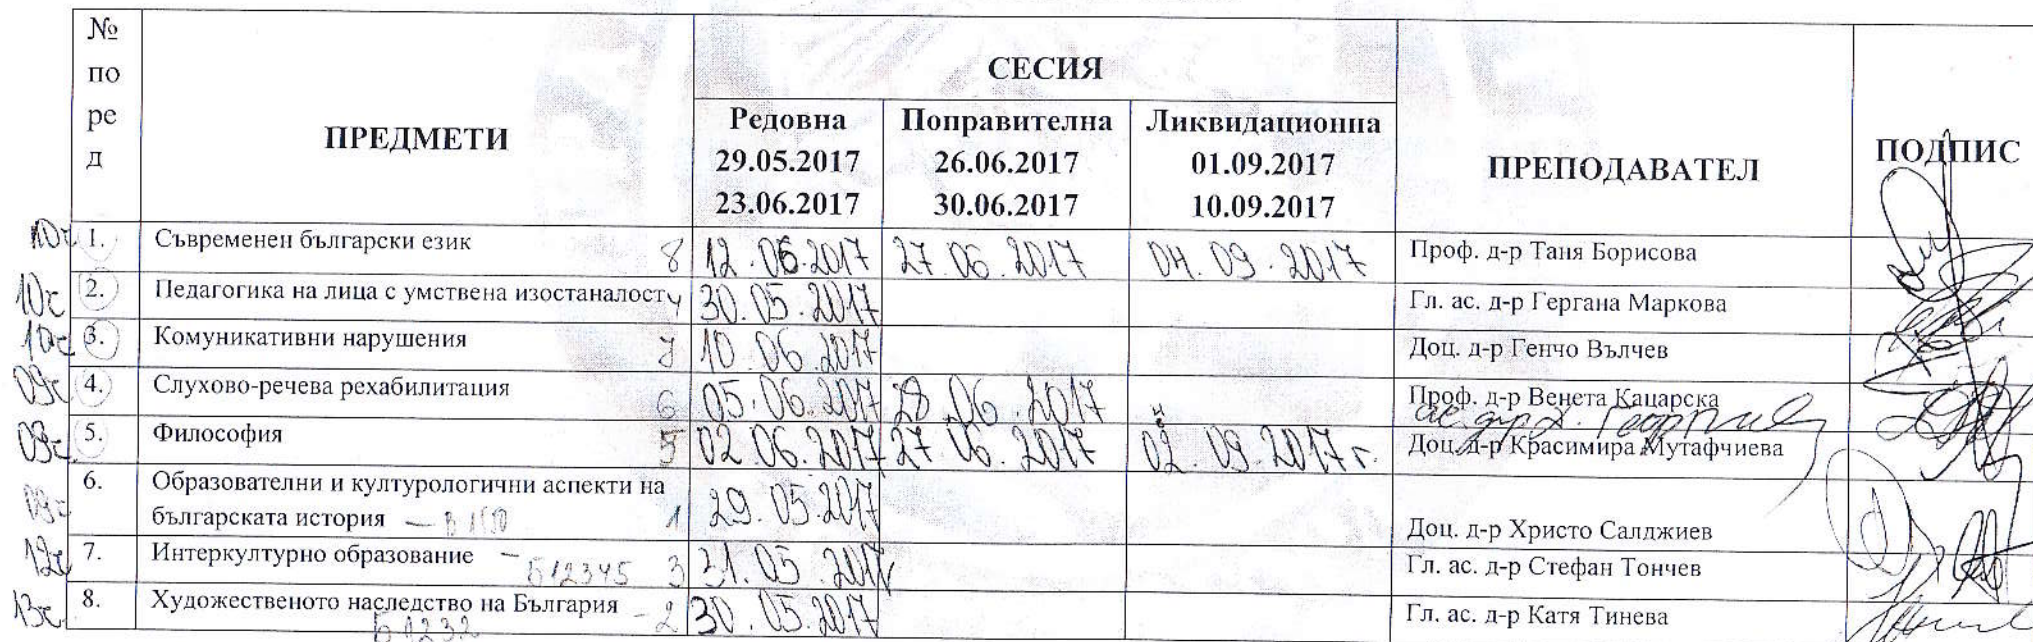 № по ре д
ПРЕДМЕТИ
СЕСИЯ
Редовна 29.05.2017 23.06.2017
Поправителна 26.06.2017 30.06.2017
Ликвидационна 01.09.2017 10.09.2017
ПРЕПОДАВАТЕЛ
ПОДПИС
10ч 1. Съвременен български език 8 12.06.2017 27.06.2017 04.09.2017 Проф. д-р Таня Борисова
10ч 2. Педагогика на лица с умствена изостаналост 4 30.05.2017 Гл. ас. д-р Гергана Маркова
10ч 3. Комуникативни нарушения 7 10.06.2017 Доц. д-р Генчо Вълчев
09ч 4. Слухово-речева рехабилитация 6 05.06.2017 28.06.2017 Проф. д-р Венета Кацарска
09ч 5. Философия 5 02.06.2017 27.06.2017 02.09.2017г. Доц. д-р Красимира Мутафчиева
09ч 6. Образователни и културологични аспекти на
българската история — 1 29.05.2017 Доц. д-р Христо Салджиев
12ч 7. Интеркултурно образование – Б12345 3 31.05.2017 Гл. ас. д-р Стефан Тончев
13ч 8. Художественото наследство на България – 2 30.05.2017 Гл. ас. д-р Катя Тинева
Б1232